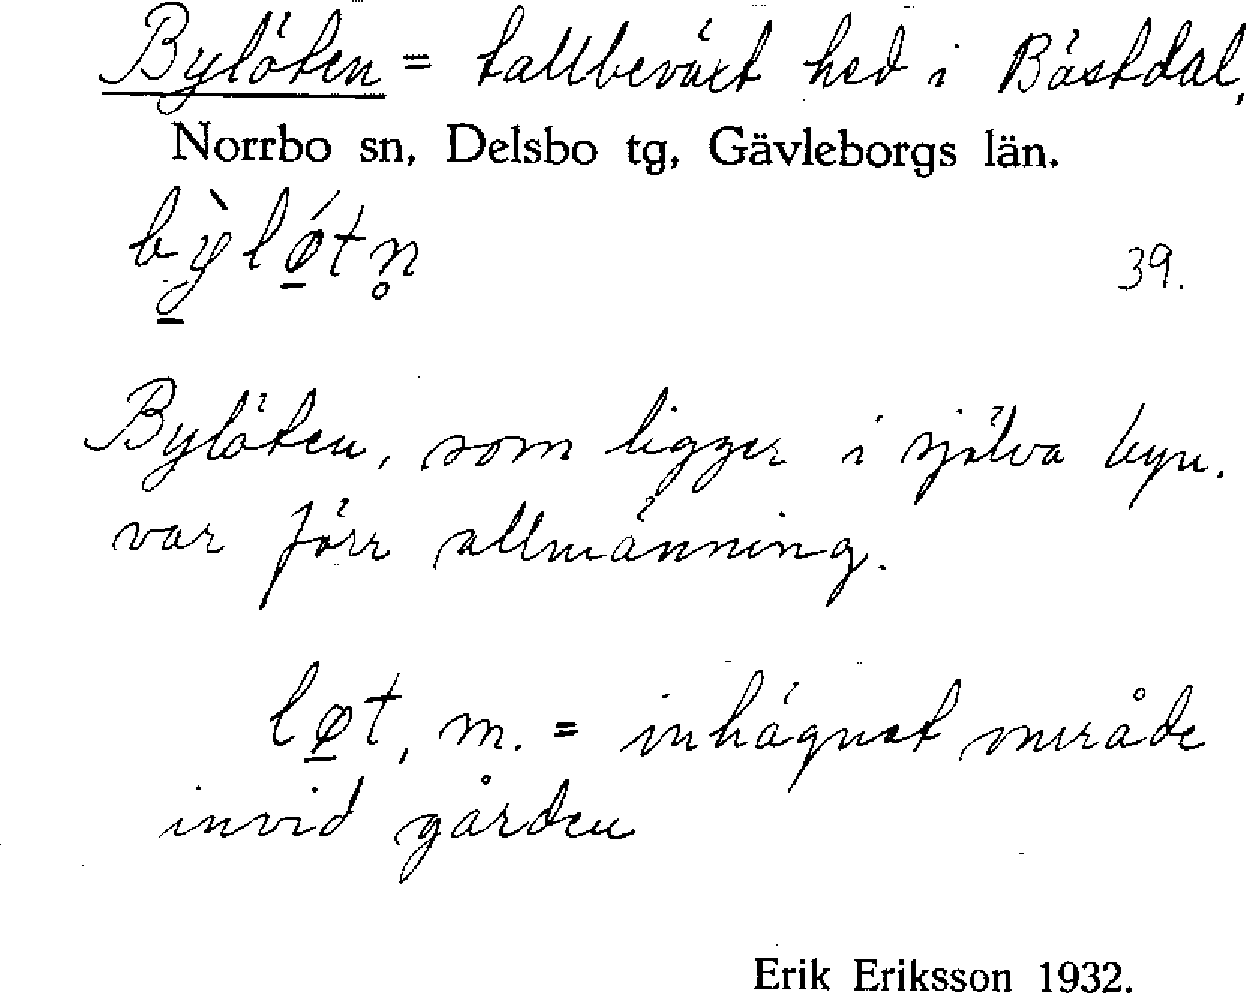 Bylöten = tallbeväxt hed i Bästdal,
Norrbo sn, Delsbo tg, Gävleborgs län.
bỳ̱lǿ̱tn̥
39.
Bylöten, som ligger i själva byn.
var förr allmänning.
lø̱t, m. = inhägnat område
invid gården
Erik Eriksson 1932.